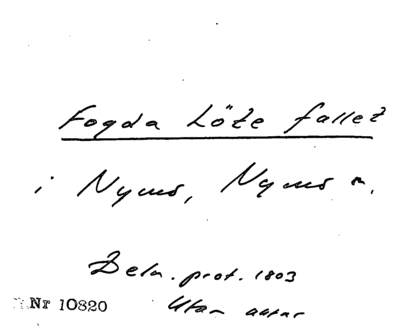 Fogda Löte fallet
i Nyms, Nyms n.
Beln. prot. 1803
Nr 10820
Utan